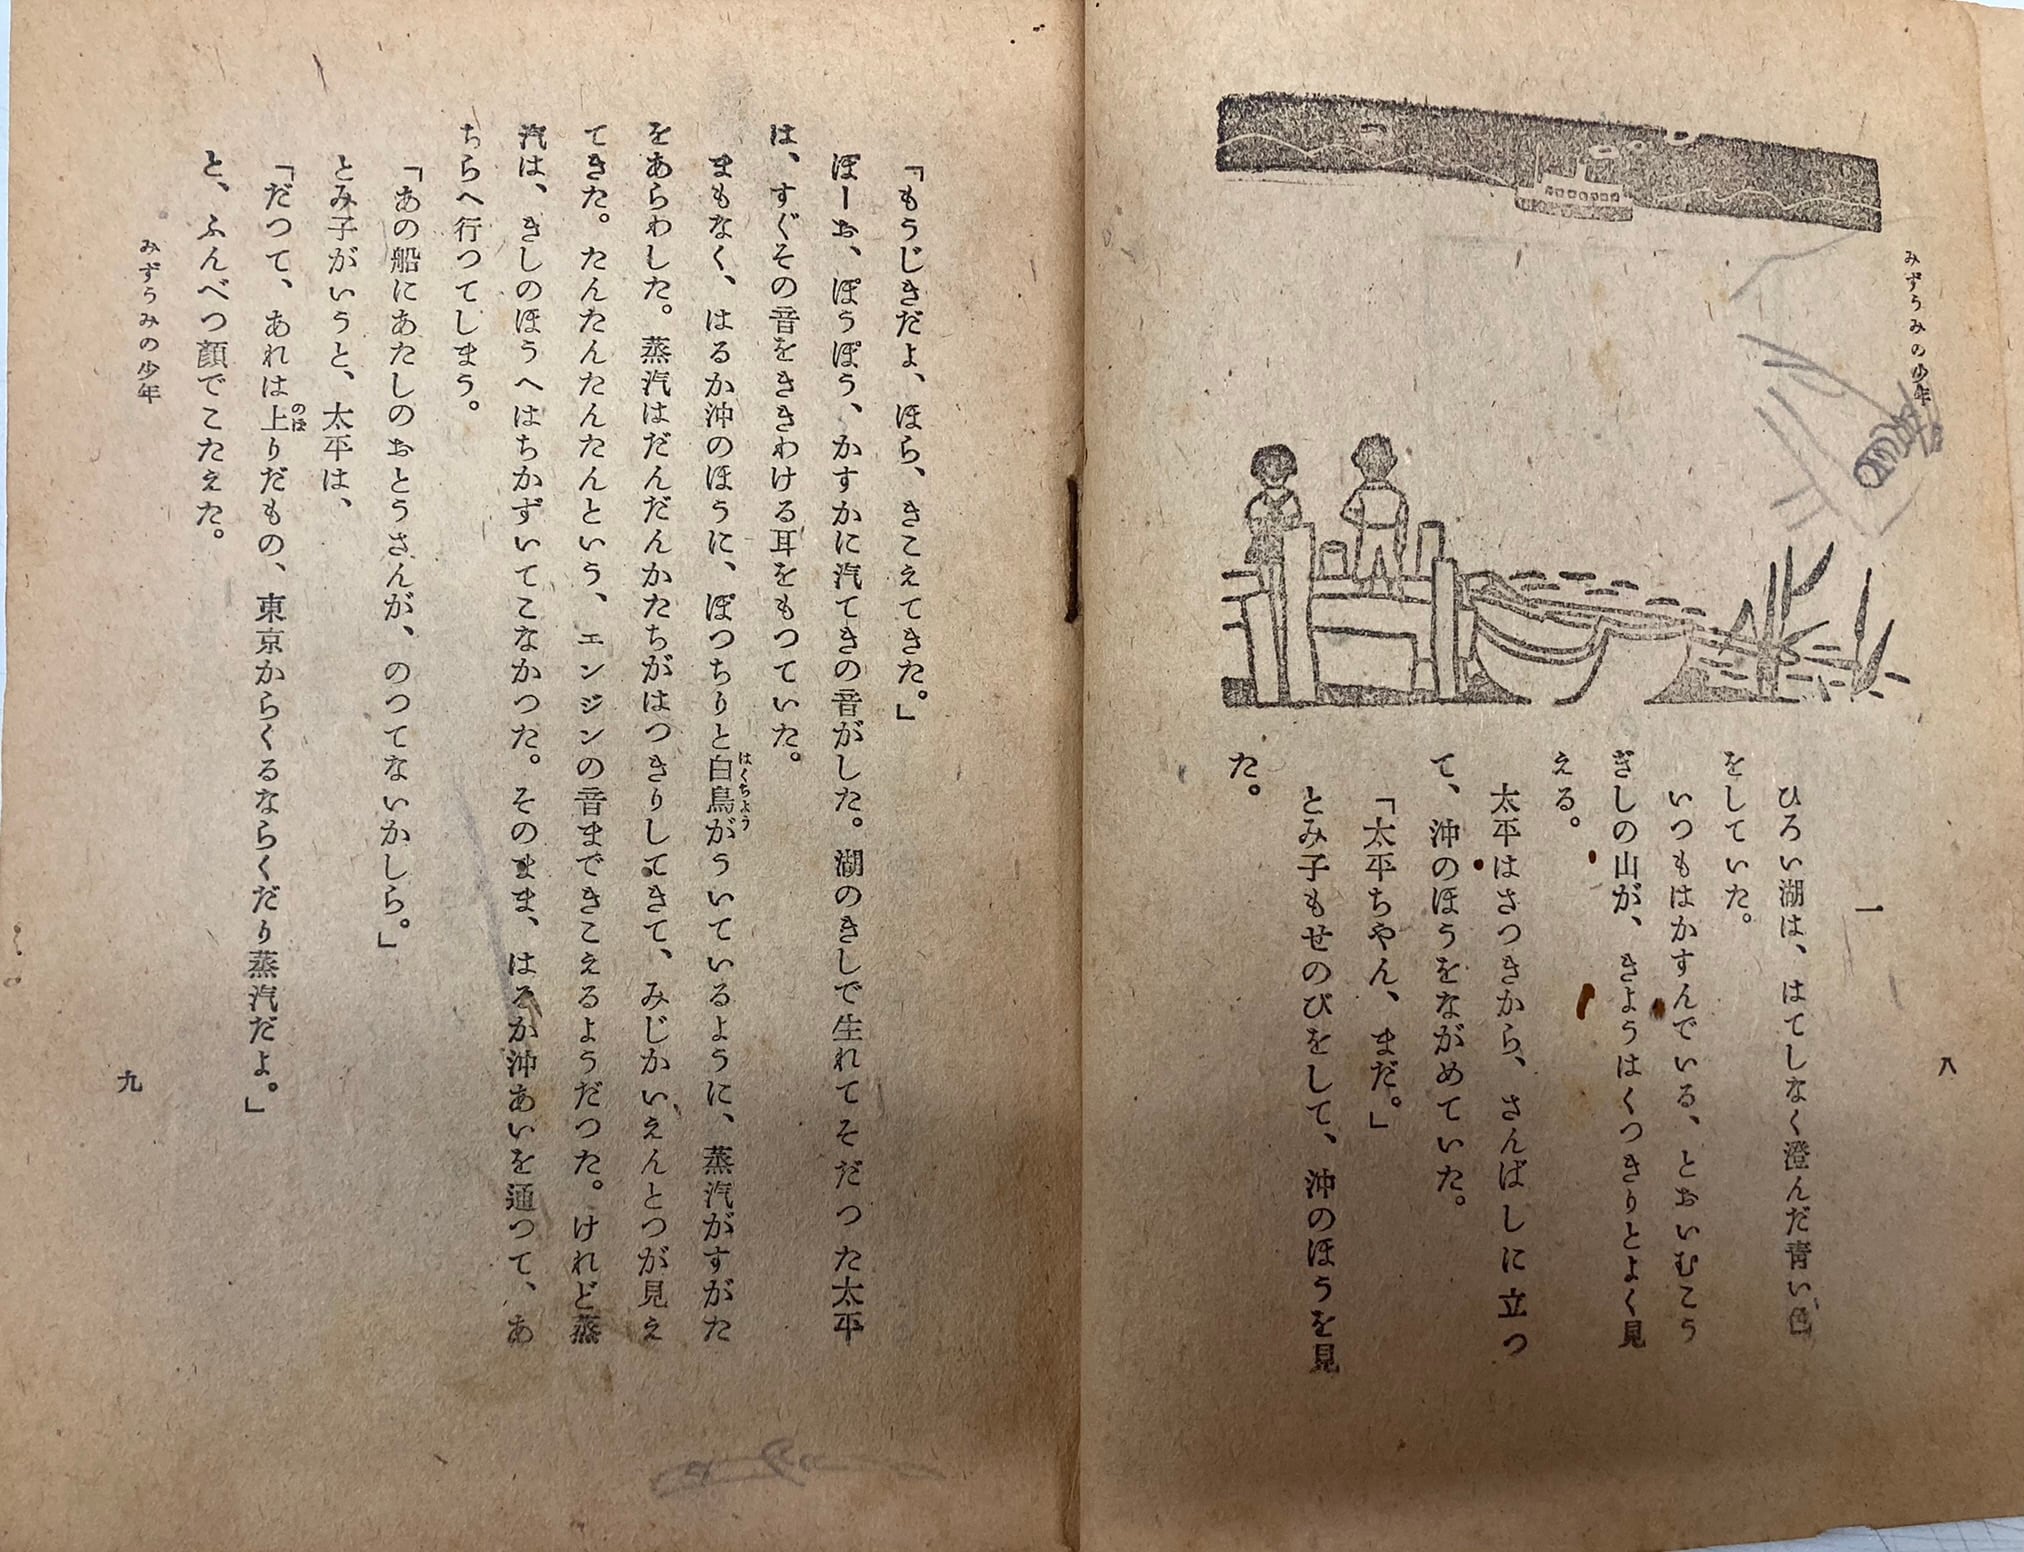 みずうみの少年
八
一
ひろい湖は、はてしなく澄んだ青い色
をしていた。
いつもはかすんでいる、とおいむこう
ぎしの山が、きようはくつきりとよく見
える。
太平はさつきから、さんばしに立つ
て、沖のほうをながめていた。
「太平ちやん、まだ。」
とみ子もせのびをして、沖のほうを見
た。
「もうじきだよ、ほら、きこえてきた。」
ぼーお、ぽうぽう、かすかに汽てきの音がした。湖のきしで生れてそだつた太平
は、すぐその音をききわける耳をもつていた。
まもなく、はるか沖のほうに、ぽつちりと白鳥がういているように、蒸汽がすがた
はくちよう
をあらわした。蒸汽はだんだんかたちがはつきりしてきて、みじかいえんとつが見え
てきた。たんたんたんたんという、エンジンの音まできこえるようだつた。けれど蒸
汽は、きしのほうへはちかずいてこなかつた。そのまま、はるか沖あいを通つて、あ
ちらへ行つてしまう。
「あの船にあたしのおとうさんが、のつてないかしら。」
とみ子がいうと、太平は、
「だつて、あれは上りだもの、東京からくるならくだり蒸汽だよ。」
のぼ
と、ふんべつ顔でこたえた。
みずうみの少年
九